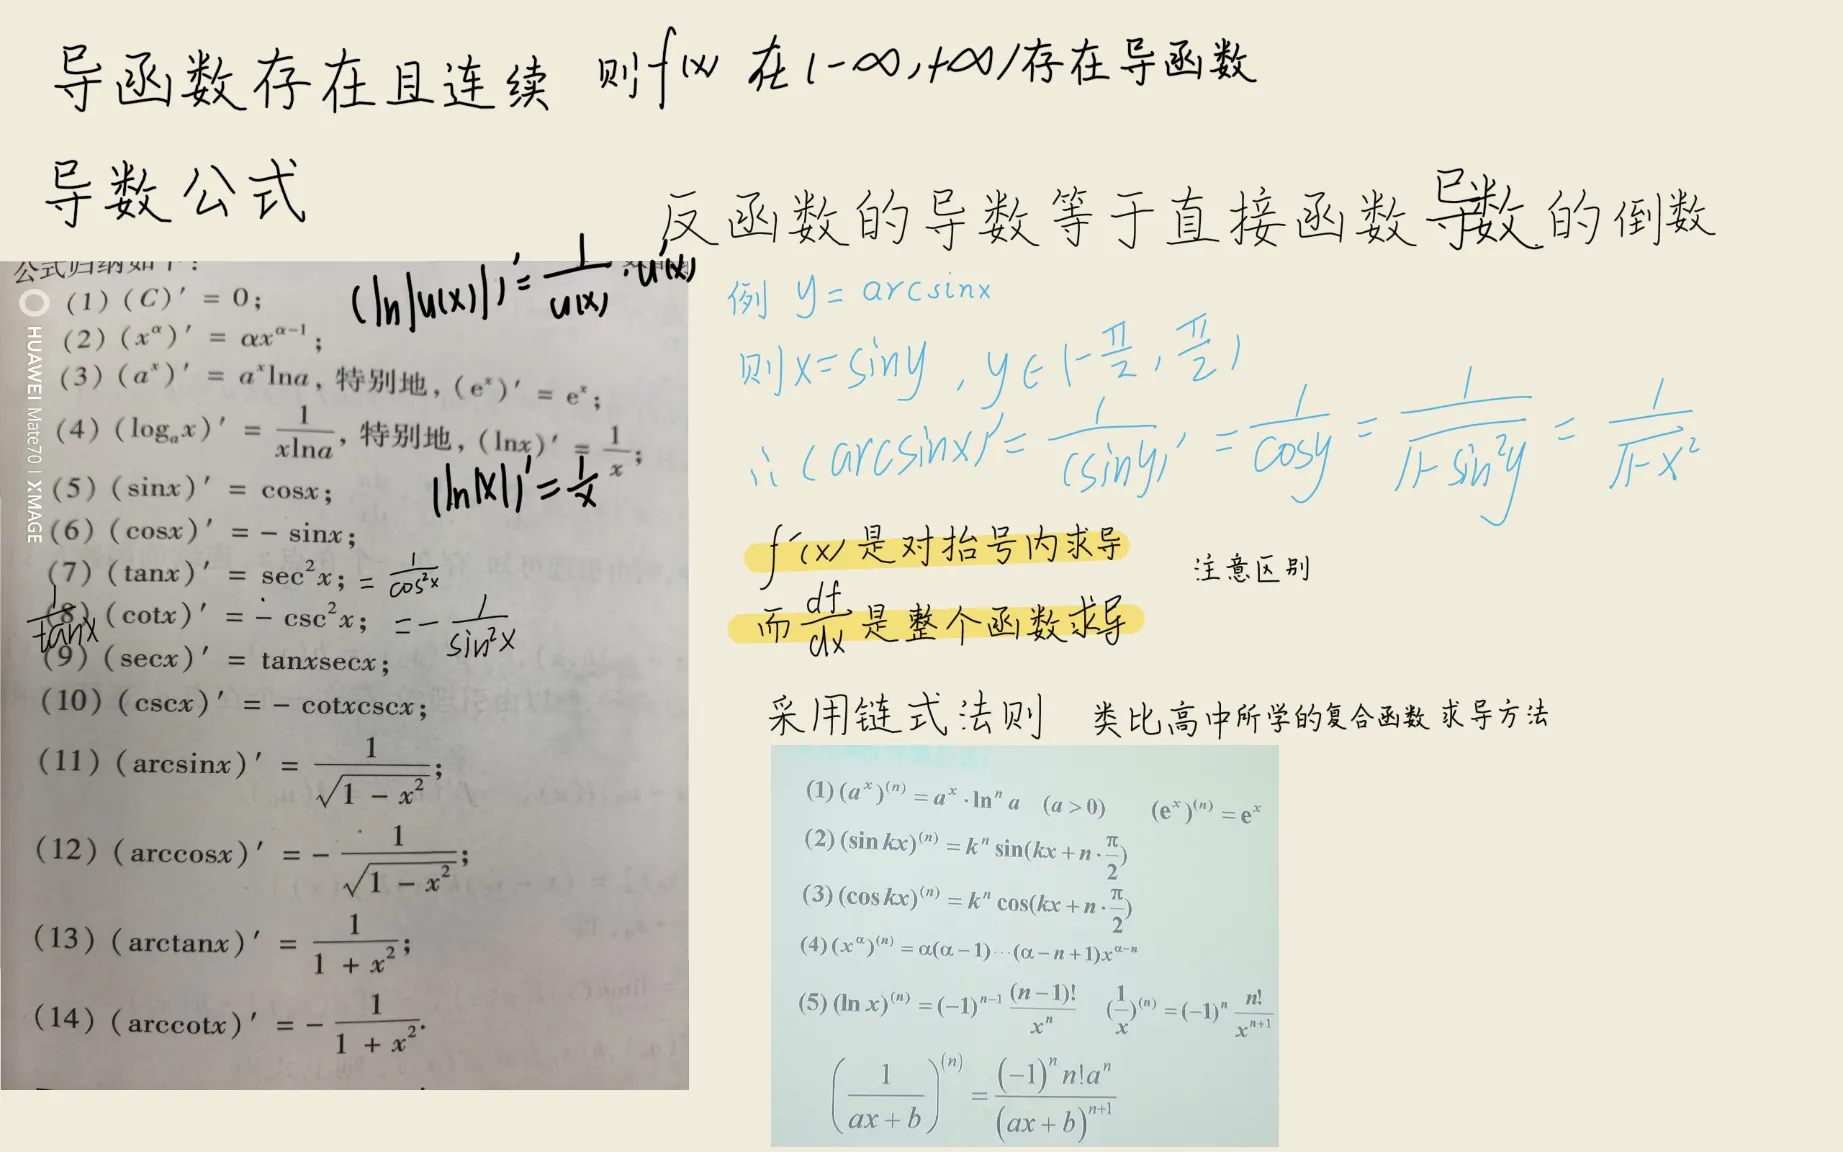 导函数存在且连续 则f(x) 在(-∞,+∞)存在导函数
导数公式
反函数的导数等于直接函数导数的倒数
公式归纳如下:
(1) (C)′ = 0;
(ln|u(x)|)′ = 1/u(x) · u′(x)
(2) (x^α)′ = αx^(α−1);
(3) (a^x)′ = a^x lna, 特别地, (e^x)′ = e^x;
(4) (log_a x)′ = 1/(xlna), 特别地, (lnx)′ = 1/x;
(5) (sinx)′ = cosx;
(ln|x|)′ = 1/x
(6) (cosx)′ = − sinx;
(7) (tanx)′ = sec²x; = 1/cos²x
(8) (cotx)′ = − csc²x; = − 1/sin²x
1/tanx
(9) (secx)′ = tanxsecx;
(10) (cscx)′ = − cotxcscx;
(11) (arcsinx)′ = 1/√(1 − x²);
(12) (arccosx)′ = − 1/√(1 − x²);
(13) (arctanx)′ = 1/(1 + x²);
(14) (arccotx)′ = − 1/(1 + x²).
HUAWEI Mate70 | XMAGE
例 y = arcsinx
则x = siny , y∈(-π/2, π/2)
∴ (arcsinx)′ = 1/(siny)′ = 1/cosy = 1/√(1-sin²y) = 1/√(1-x²)
f′(x) 是对括号内求导
注意区别
而 df/dx 是整个函数求导
采用链式法则 类比高中所学的复合函数求导方法
(1) (a^x)^(n) = a^x · ln^n a (a > 0) (e^x)^(n) = e^x
(2) (sin kx)^(n) = k^n sin(kx + n · π/2)
(3) (cos kx)^(n) = k^n cos(kx + n · π/2)
(4) (x^α)^(n) = α(α − 1)···(α − n + 1)x^(α−n)
(5) (ln x)^(n) = (−1)^(n−1) (n − 1)!/x^n (1/x)^(n) = (−1)^n n!/x^(n+1)
(1/(ax + b))^(n) = (−1)^n n!a^n/(ax + b)^(n+1)